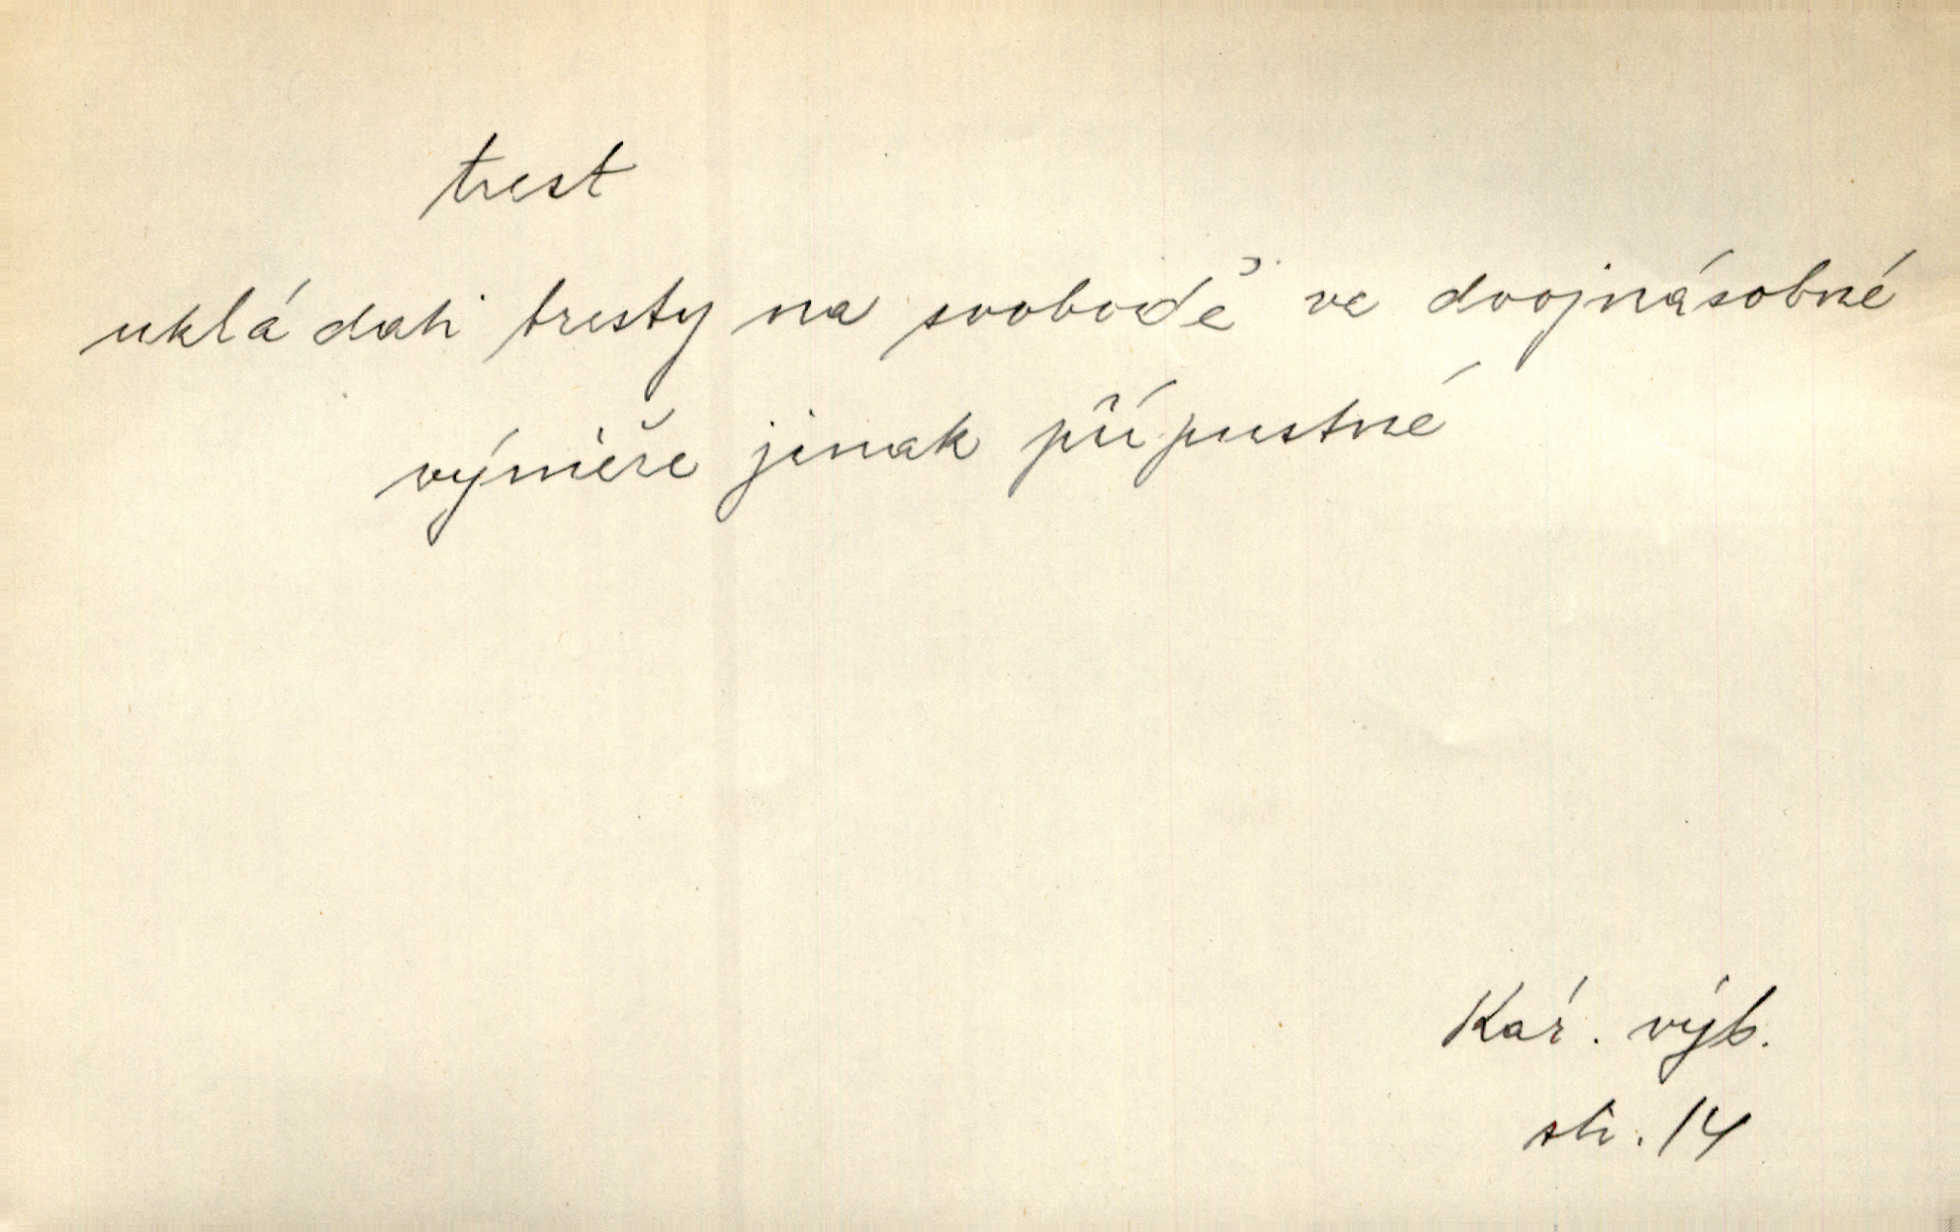 trest
ukládati tresty na svobodě ve dvojnásobné
výměře jinak přípustné
Kář. výb.
str. 14